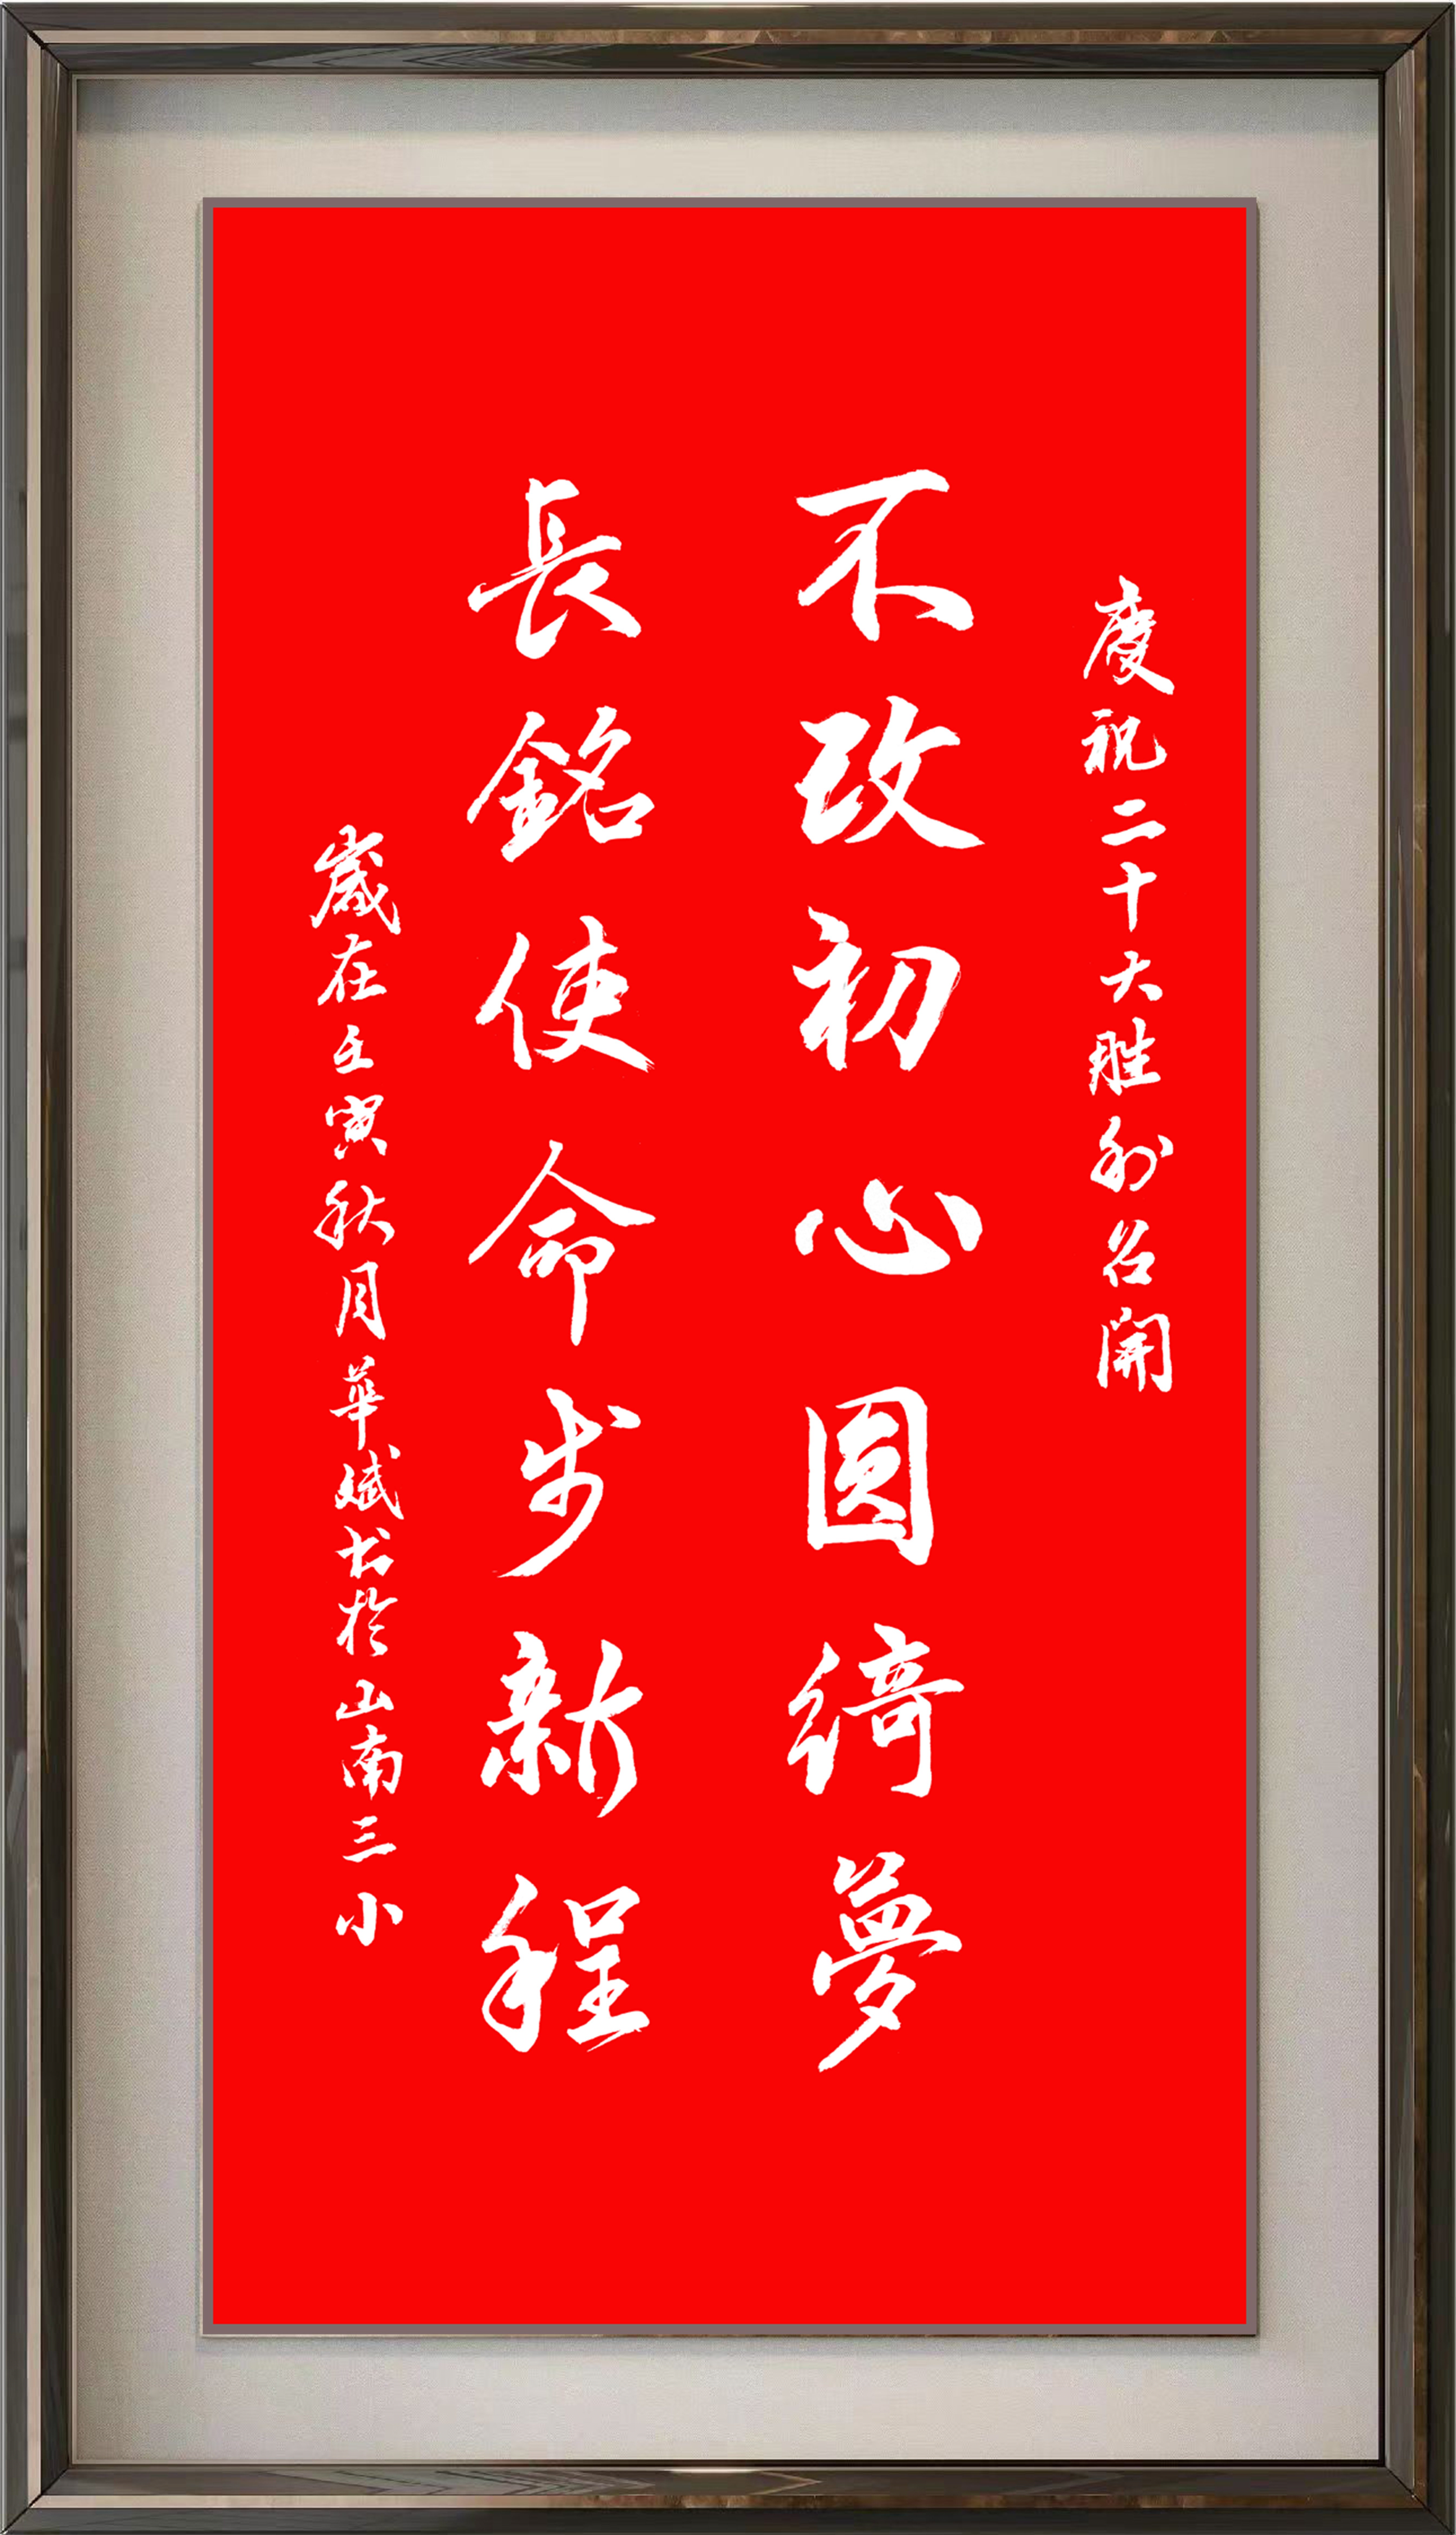 慶祝二十大胜利召開
不改初心圆綺夢
長銘使命步新程
歲在壬寅秋月華斌书於山南三小